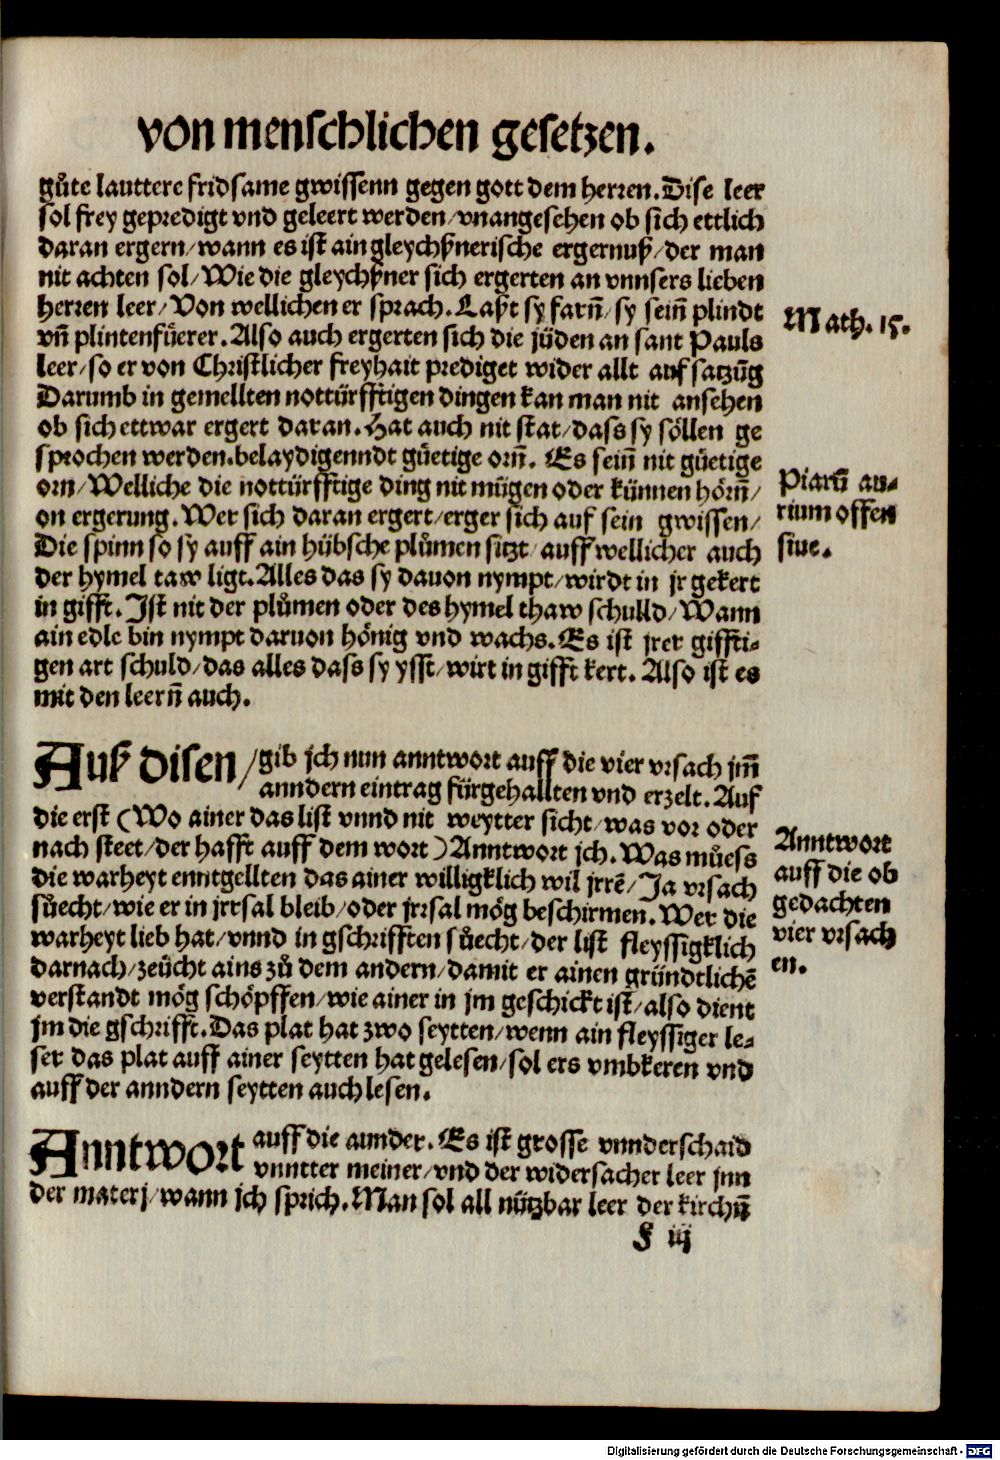 von menschlichen gesetzen.
gůte lauttere fridsame gwissenn gegen gott dem herren. Dise leer
sol frey gepredigt vnd geleert werden/vnangesehen ob sich ettlich
daran ergern/wann es ist ain gleychßnerische ergernuß/der man
nit achten sol/Wie die gleychßner sich ergerten an vnnsers lieben
herren leer/Von wellichen er sprach. Laßt sy farñ/sy seiñ plindt
vñ plintenfüerer. Also auch ergerten sich die jüden an sant Pauls
leer/so er von Christlicher freyhait prediget wider allt auf satzūg
Darumb in gemellten nottürfftigen dingen kan man nit ansehen
ob sich ettwar ergert daran. Hat auch nit stat/dass sy söllen ge
sprochen werden. belaydigenndt güetige orñ. Es seiñ nit güetige
orn/Welliche die nottürfftige ding nit mügen oder künnen hörñ/
on ergerung. Wer sich daran ergert/erger sich auf sein gwissen/
Die spinn so sy auff ain hübsche plůmen sitzt/auff wellicher auch
der hymel taw ligt. Alles das sy dauon nympt/wirdt in jr gekert
in gifft. Ist nit der plůmen oder des hymel thaw schulld/Wann
ain edle bin nympt daruon hönig vnd wachs. Es ist jrer giffti-
gen art schuld/das alles dass sy ysst/wirt in gifft kert. Also ist es
mit den leerñ auch.
Math. 15.
Piarū au-
rium offen
siue.
Auß disen/gib jch nun anntwort auff die vier vrsach jm̄
anndern eintrag fürgehallten vnd erzelt. Auf
die erst (Wo ainer das list vnnd nit weytter sicht/was vor oder
nach steet/der hafft auff dem wort) Anntwort jch. Was můess
die warheyt enntgellten das ainer willigklich wil jrrē/Ja vrsach
sůecht/wie er in jrrsal bleib/oder jrrsal mög beschirmen. Wer die
warheyt lieb hat/vnnd in gschrifften sůecht/der list fleyssigklich
darnach/zeücht ains zů dem andern/damit er ainen gründtlichē
verstandt mög schöpffen/wie ainer in jm geschickt ist/also dient
jm die gschrifft. Das plat hat zwo seytten/wenn ain fleyssiger le-
ser das plat auff ainer seytten hat gelesen/sol ers vmbkeren vnd
auff der anndern seytten auch lesen.
Anntwort
auff die ob
gedachten
vier vrsach
en.
Anntwort auff die annder. Es ist grosse vnnderschaid
vnntter meiner/vnd der widersacher leer jnn
der materj/wann jch sprich. Man sol all nützbar leer der kirchñ
F iij
Digitalisierung gefördert durch die Deutsche Forschungsgemeinschaft - DFG